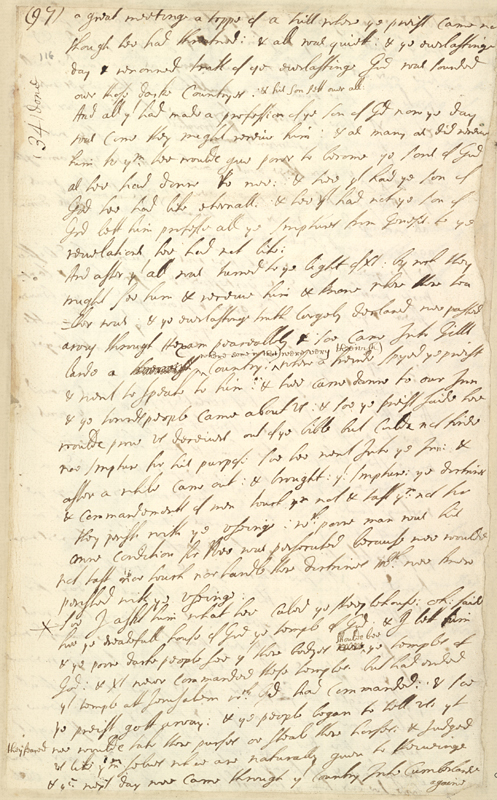 (97)
a great meetinge a toppe of a hill where ye preist came not
though hee had thretned: & all was quiet: & ye everlastinge
day & renowned truth of ye everlastinge God was sounded
over those darke Countryes: & his son sett over all:
116
34 done
And all yt had made a profession of ye son of God now ye day
was come they might receive him: & as many as did receive
him to ym hee woulde give power to become ye sons of God
as hee had donne to mee: & hee yt had ye son of
God hee had life eternall: & hee yt had not ye son of
God lett him professe all ye scriptures from Genesis to ye
revelations hee had not life:
And after yt all was turned to ye light of Xt: by wch they
might see him & receive him & knowe where there tea=
=cher was: & ye everlastinge truth largely declared wee passed
away through them peaceablly & soe came Into Gills
lande a Country: where a freinde spyed ye preist
where one yt was very theevish
& went to speake to him: & hee came downe to our Inn
& ye townes people came about us: & soe ye preist saide hee
woulde prove us deceivers out of ye bible but coulde not finde
noe scripture for his purpose soe hee went Into ye Inn: &
after a while came out: & brought: yt scripture: ye doctrines
& commandements of men touch ym not & tast ym not for
they perish with ye usinge: wch poore man was his
owne condition for wee was persecuted because wee woulde
not tast nor touch nor handle there doctrines wch wee knew
perished with ye usinge:
X Soe I askt him what hee caled ye steeplehouse: oh: saide
hee ye dreadfull house of God ye temple of God: & I lett him
& ye poore darke people see yt there bodyes shoulde bee ye temples of
God: & Xt never commanded these temples but had ended
yt temple att Jerusalem wch God had commanded: & soe
ye preist gott away: & ye people began to tell us yt
they feared
wee woulde take there purses or steale there horses: & Judged
us like ymselves whoe are naturally given to theevinge
& ye next day wee came through yt Country Into Cumberlande
againe